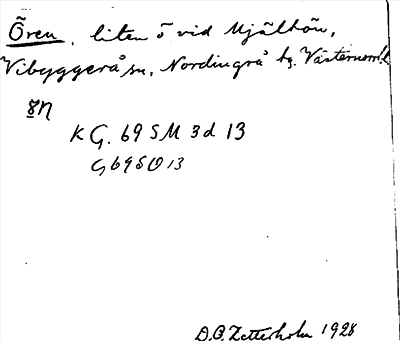 Ören, liten ö vid Mjältön,
Vibyggerå sn, Nordingrå tg. Västernorrl. l.
ÿn
K G. 69 S M 3 d 13
G 69 S O 13
D.O. Zetterholm 1928